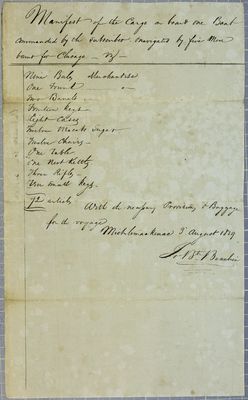 Manifest of the Cargo on board one Boat
commanded by the Subscriber navigated by five Men
bound for Chicago — Viz —
Nine Bales Merchandise
One Trunk
Two Barrels
Fourteen Kegs
Eight Cases
Twelve Mococks Sugar
Twelve Chairs
One Table
One Nest Kettles
Three Rifles
Ten small Kegs
72 articles With the necessary Provisions & Baggage
for the voyage
Michilimackinac 3 August 1819
Jo. Bt. Beaubien